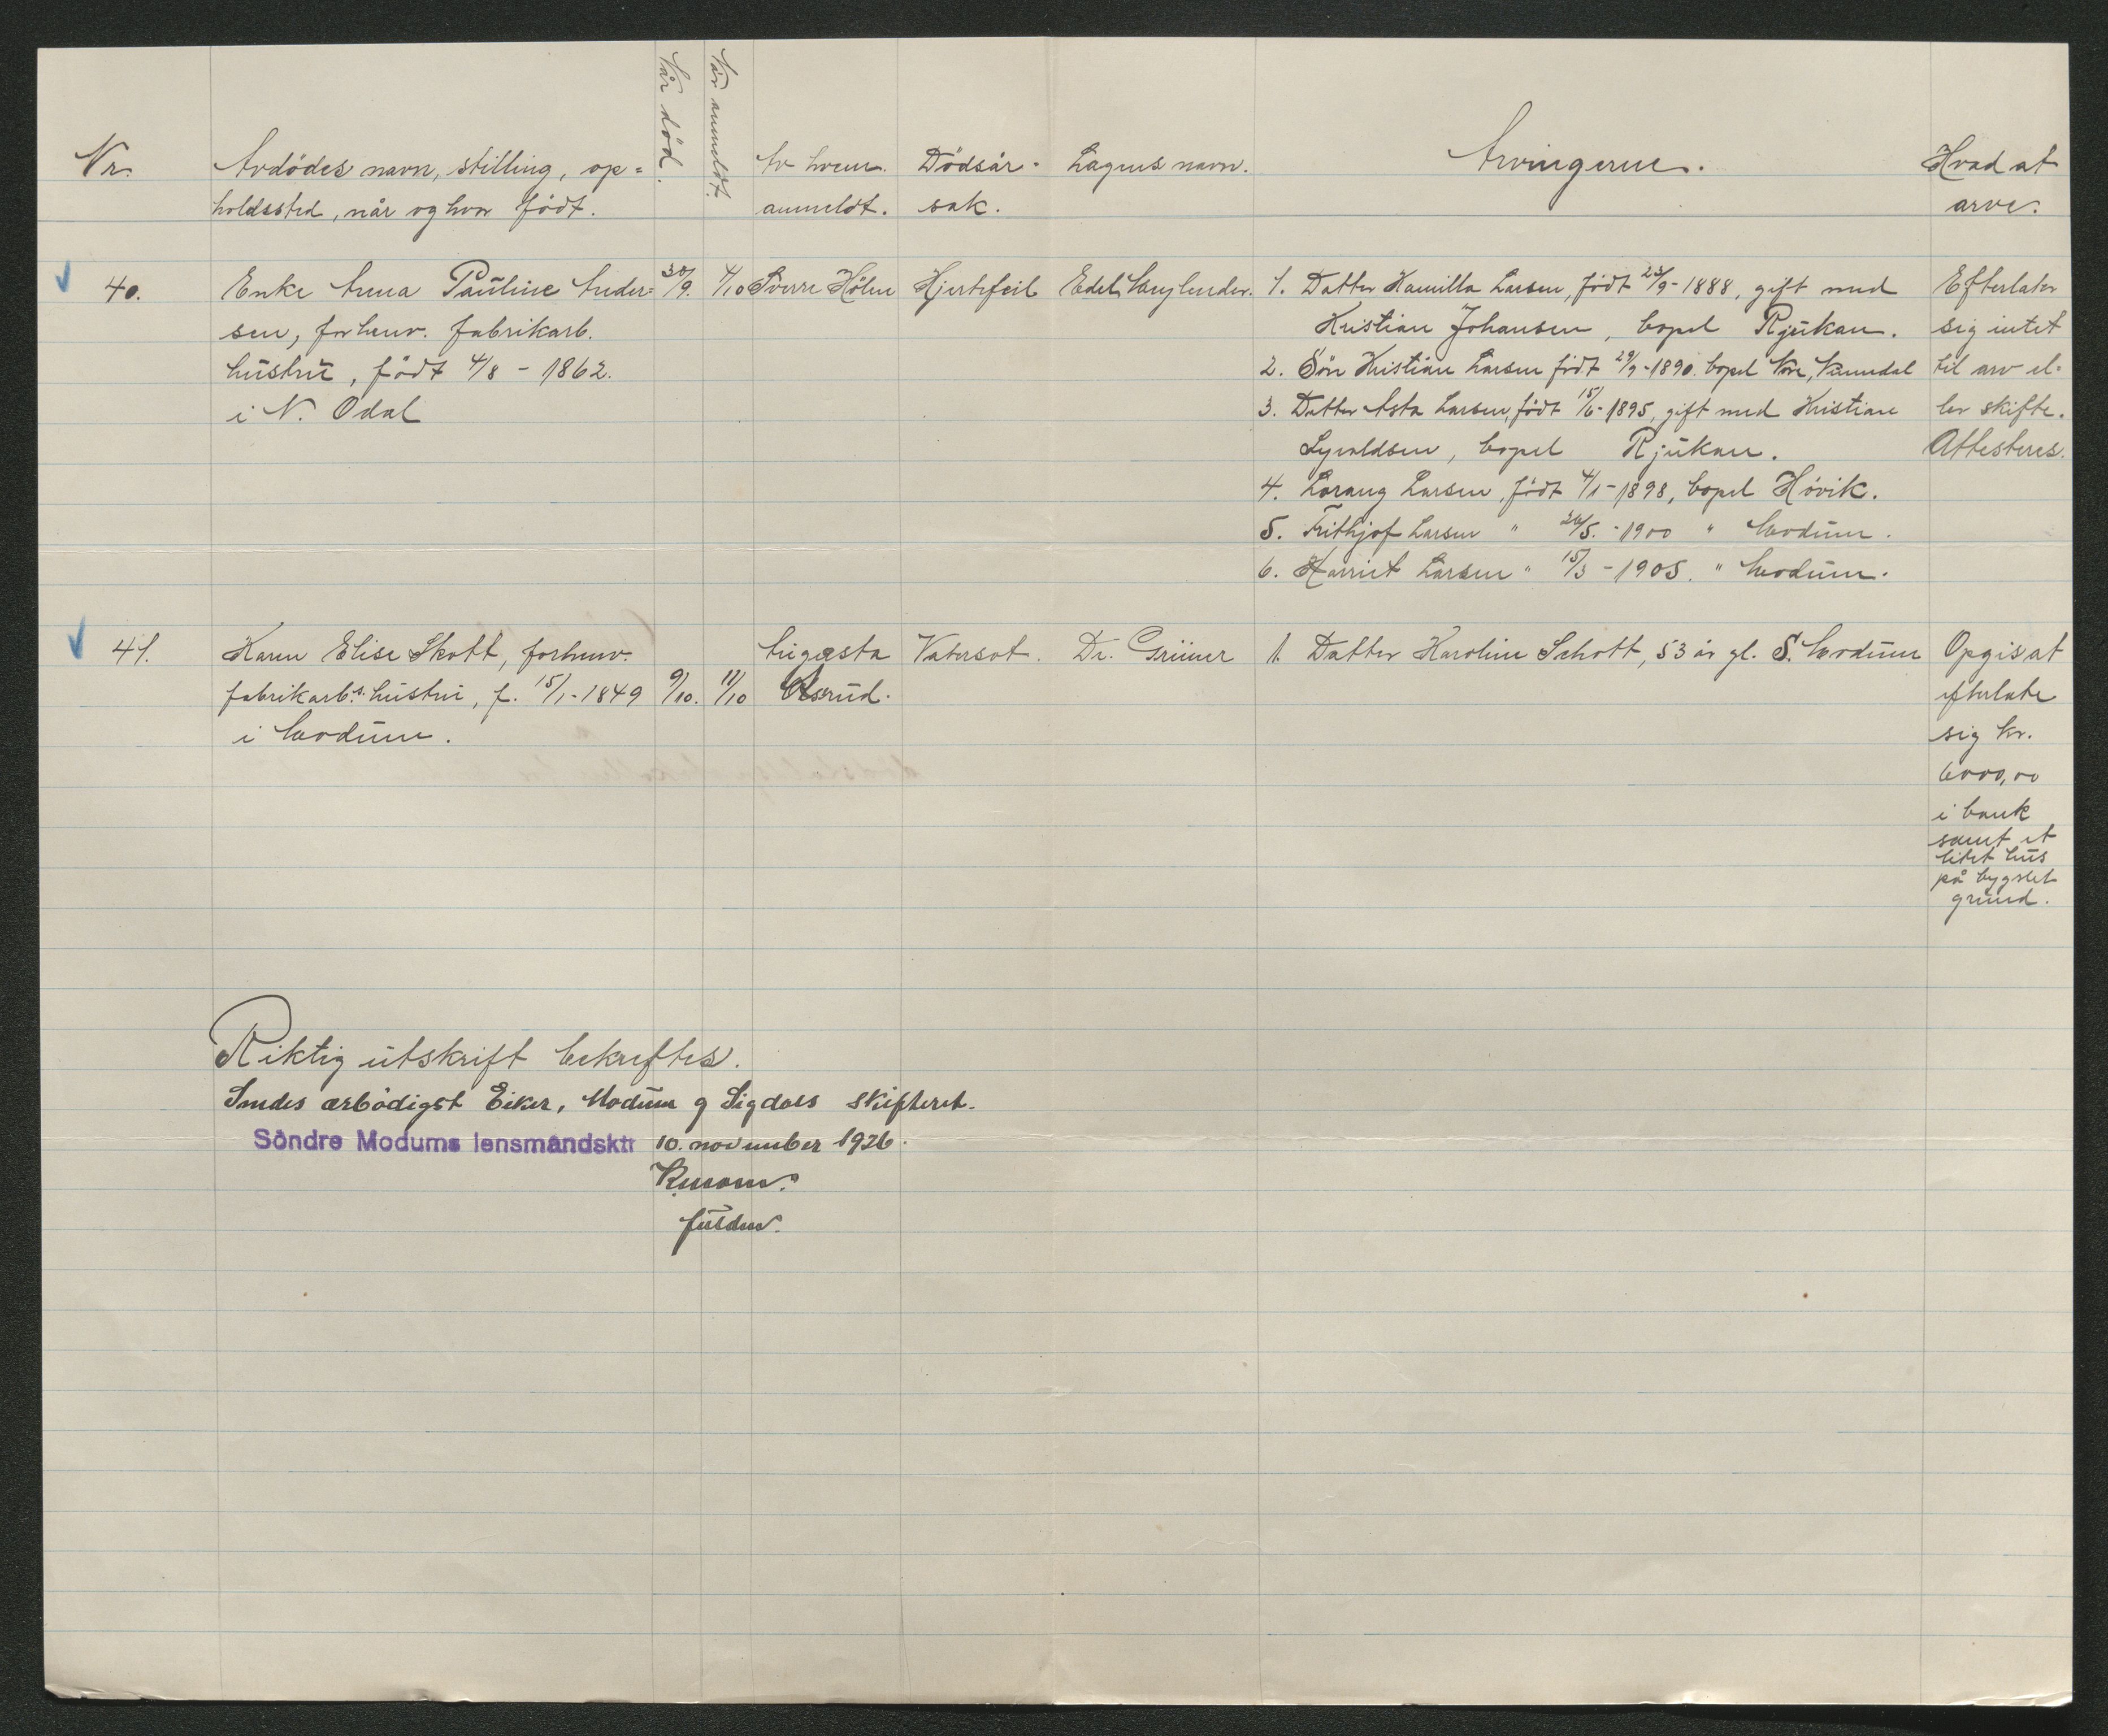 Nr.
Avdödes navn, stilling, op=
holdssted, når og hvor födt.
Når död.
Når anmeldt.
Av hvem
anmeldt.
Dödsår-
sak.
Lægens navn.
Arvingerne.
Hvad at
arve.
40.
Enke Anna Pauline Ander=
sen, forhenv. fabrikarb.
hustru, födt 4/8 - 1862.
i N. Odal
30/9.
4/10
Sverre Holm
Hjertefeil
Edel
1. Datter Kamilla Larsen, födt 23/9 - 1888, gift med
Kristian Johansen, bopel Rjukan.
2. Sön Kristian Larsen födt 29/9 - 1890. bopel Nore, Numedal
3. Datter Asta Larsen, födt 15/6 - 1895, gift med Kristian
Syvaldsen, bopel Rjukan.
4. Lorang Larsen, födt 4/1 - 1898, bopel Hövik.
5. Frithjof Larsen " 26/5. - 1900 " Modum.
6. Harriet Larsen " 15/3 - 1905. " Modum.
Efterlater
sig intet
til arv el-
ler skifte.
Attesteres.
41.
Karen Elise Skott, forhenv.
fabrikarb.s hustru, f. 15/1 - 1849
i Modum.
9/10.
11/10
Augusta
Vatersot.
Dr. Grüner
1. Datter Karoline Schott, 53 år gl. S. Modum
Opgis at
efterlate
sig kr.
6000,00
i bank
samt et
litet hus
på bygslet
grund.
Riktig utskrift bekreftes.
Sendes ærbödigst Eiker, Modum g Sigdals skifteret.
Söndre Modums lensmandsktr 10. november 1926.
fuldm.